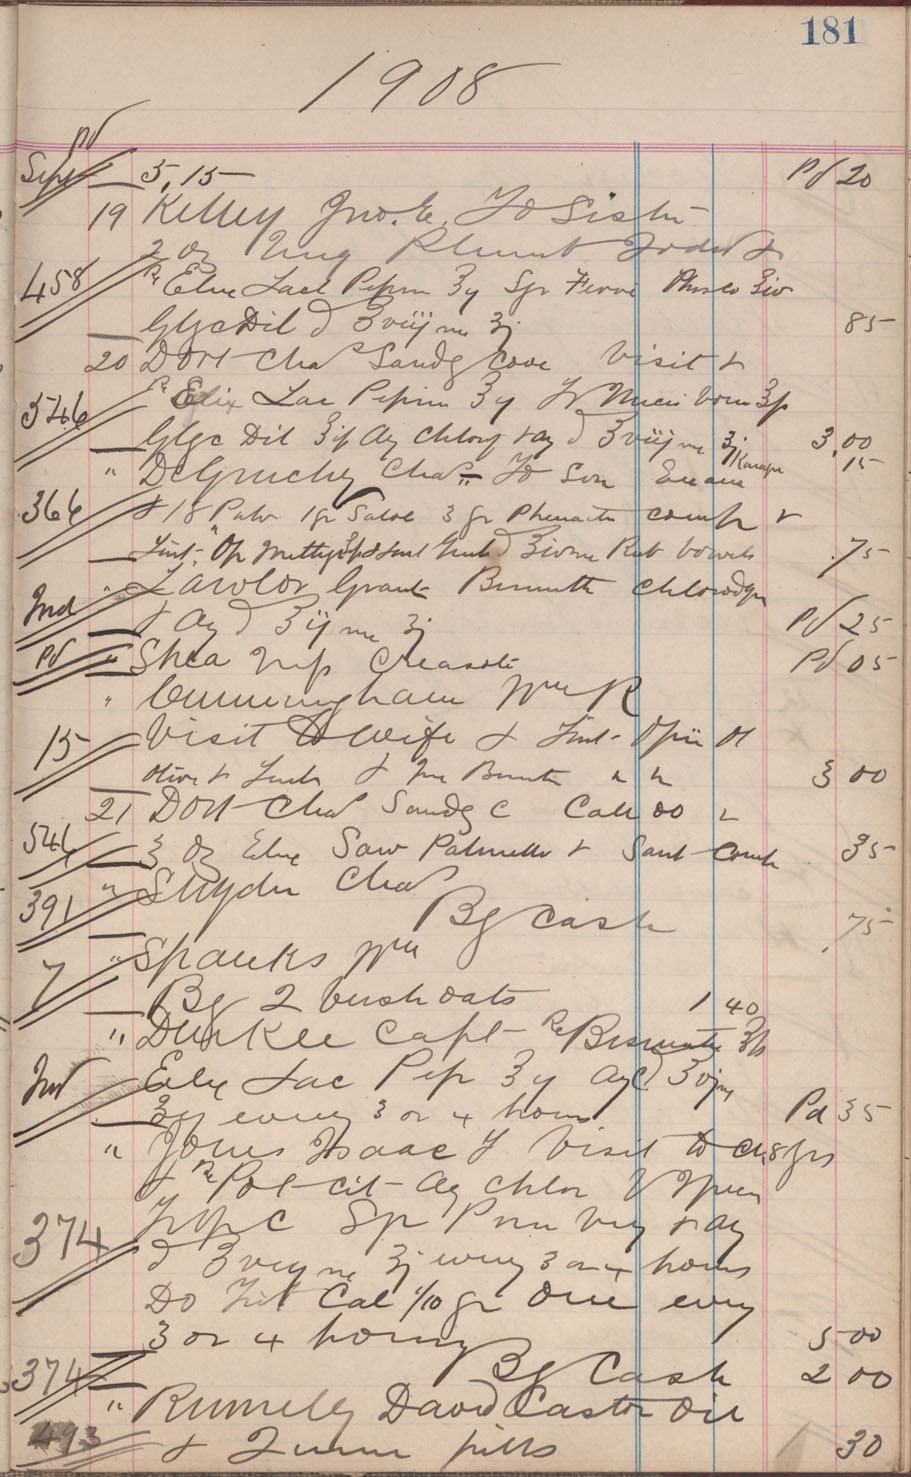 181
1908
pd
Sept 5, 15 Pd 20
19 Kelley Jno. E. To Sister
2 oz Ung Plumb Iodid &
458 Rx Elix Lact Pepsin ʒij Syr Ferri Phosco ʒiv
Glyc Dil ad ʒviij me ʒj 85
20 Dort Chas Sandy Cove Visit &
546 Rx Elix Lac Pepsin ʒij Tr Nucis Vom ʒp
Glyc Dil Aq Chlorof & aq ad ʒviij me ʒj 3.00
" DeGruchy Chas To Son 15
366 & 18 Pulv 1 gr Salol 3 gr Phenacetin comp &
Lint. Op ad ʒiv me Rub bowels .75
" Lawlor Grant Bismuth Chlorodyn
Ind & Aq ad ʒij me ʒj Pd 25
Pd " Shea Mrs Creasote Pd 05
" Cunningham Wm R
15 Visit to Wife & Lint. Opii Ol
Olive & & Bismuth " " 3 00
21 Dort Chas Sandy C Call 00 &
546 3 oz Elix Saw Palmetto & Sant Comp .35
391 " Snyder Chas
By Cash .75
7 " Spanks Wm
By 2 bush oats 1 40
" Durkee Capt Rx Bismuth
Ind Elix Lac Pep ʒij Aq ad ʒvj me
ʒij every 3 or 4 hours Pd 35
" Jones Isaac J Visit to
& Rx Pot cit Aq Chlor V Ipecac
374 Syr Prun Virg & aq
ad ʒviij me ʒj every 3 or 4 hours
Do Trit Cal 1/10 gr One every
3 or 4 hours 5 00
374 By Cash 2 00
" Rumely David Castor Oil
493 & Quinn pills 30